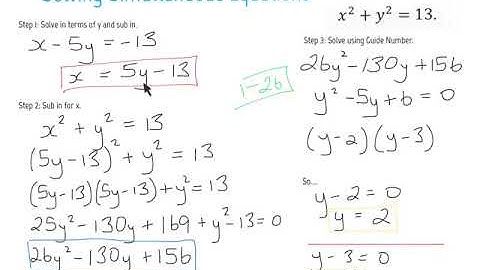 Solving Simultaneous Equations
x² + y² = 13.
Step 1: Solve in terms of y and sub in.
x - 5y = -13
x = 5y - 13
Step 2: Sub in for x.
x² + y² = 13
(5y - 13)² + y² = 13
(5y - 13)(5y - 13) + y² = 13
25y² - 130y + 169 + y² - 13 = 0
26y² - 130y + 156
1 - 26
Step 3: Solve using Guide Number.
26y² - 130y + 156
y² - 5y + 6 = 0
(y - 2)(y - 3)
So...
y - 2 = 0
y = 2
y - 3 = 0